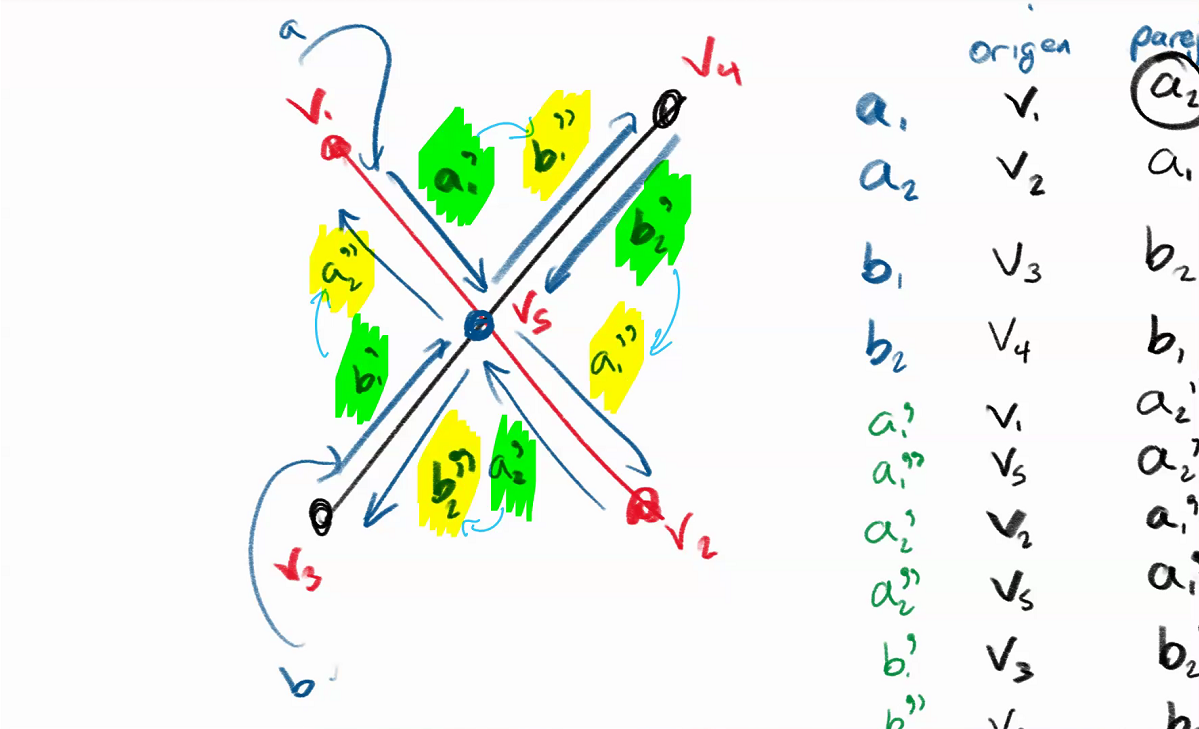 a
v₁
v₄
a₁'
b₁''
b₂'
a₂''
v₅
b₁'
a₁''
b₂''
a₂'
v₃
v₂
b
origen
a₁ v₁ a₂
a₂ v₂ a₁
b₁ v₃ b₂
b₂ v₄ b₁
a₁' v₁ a₂'
a₁'' v₅ a₂'
a₂' v₂ a₁'
a₂'' v₅ a₁
b₁' v₃ b₂
b''